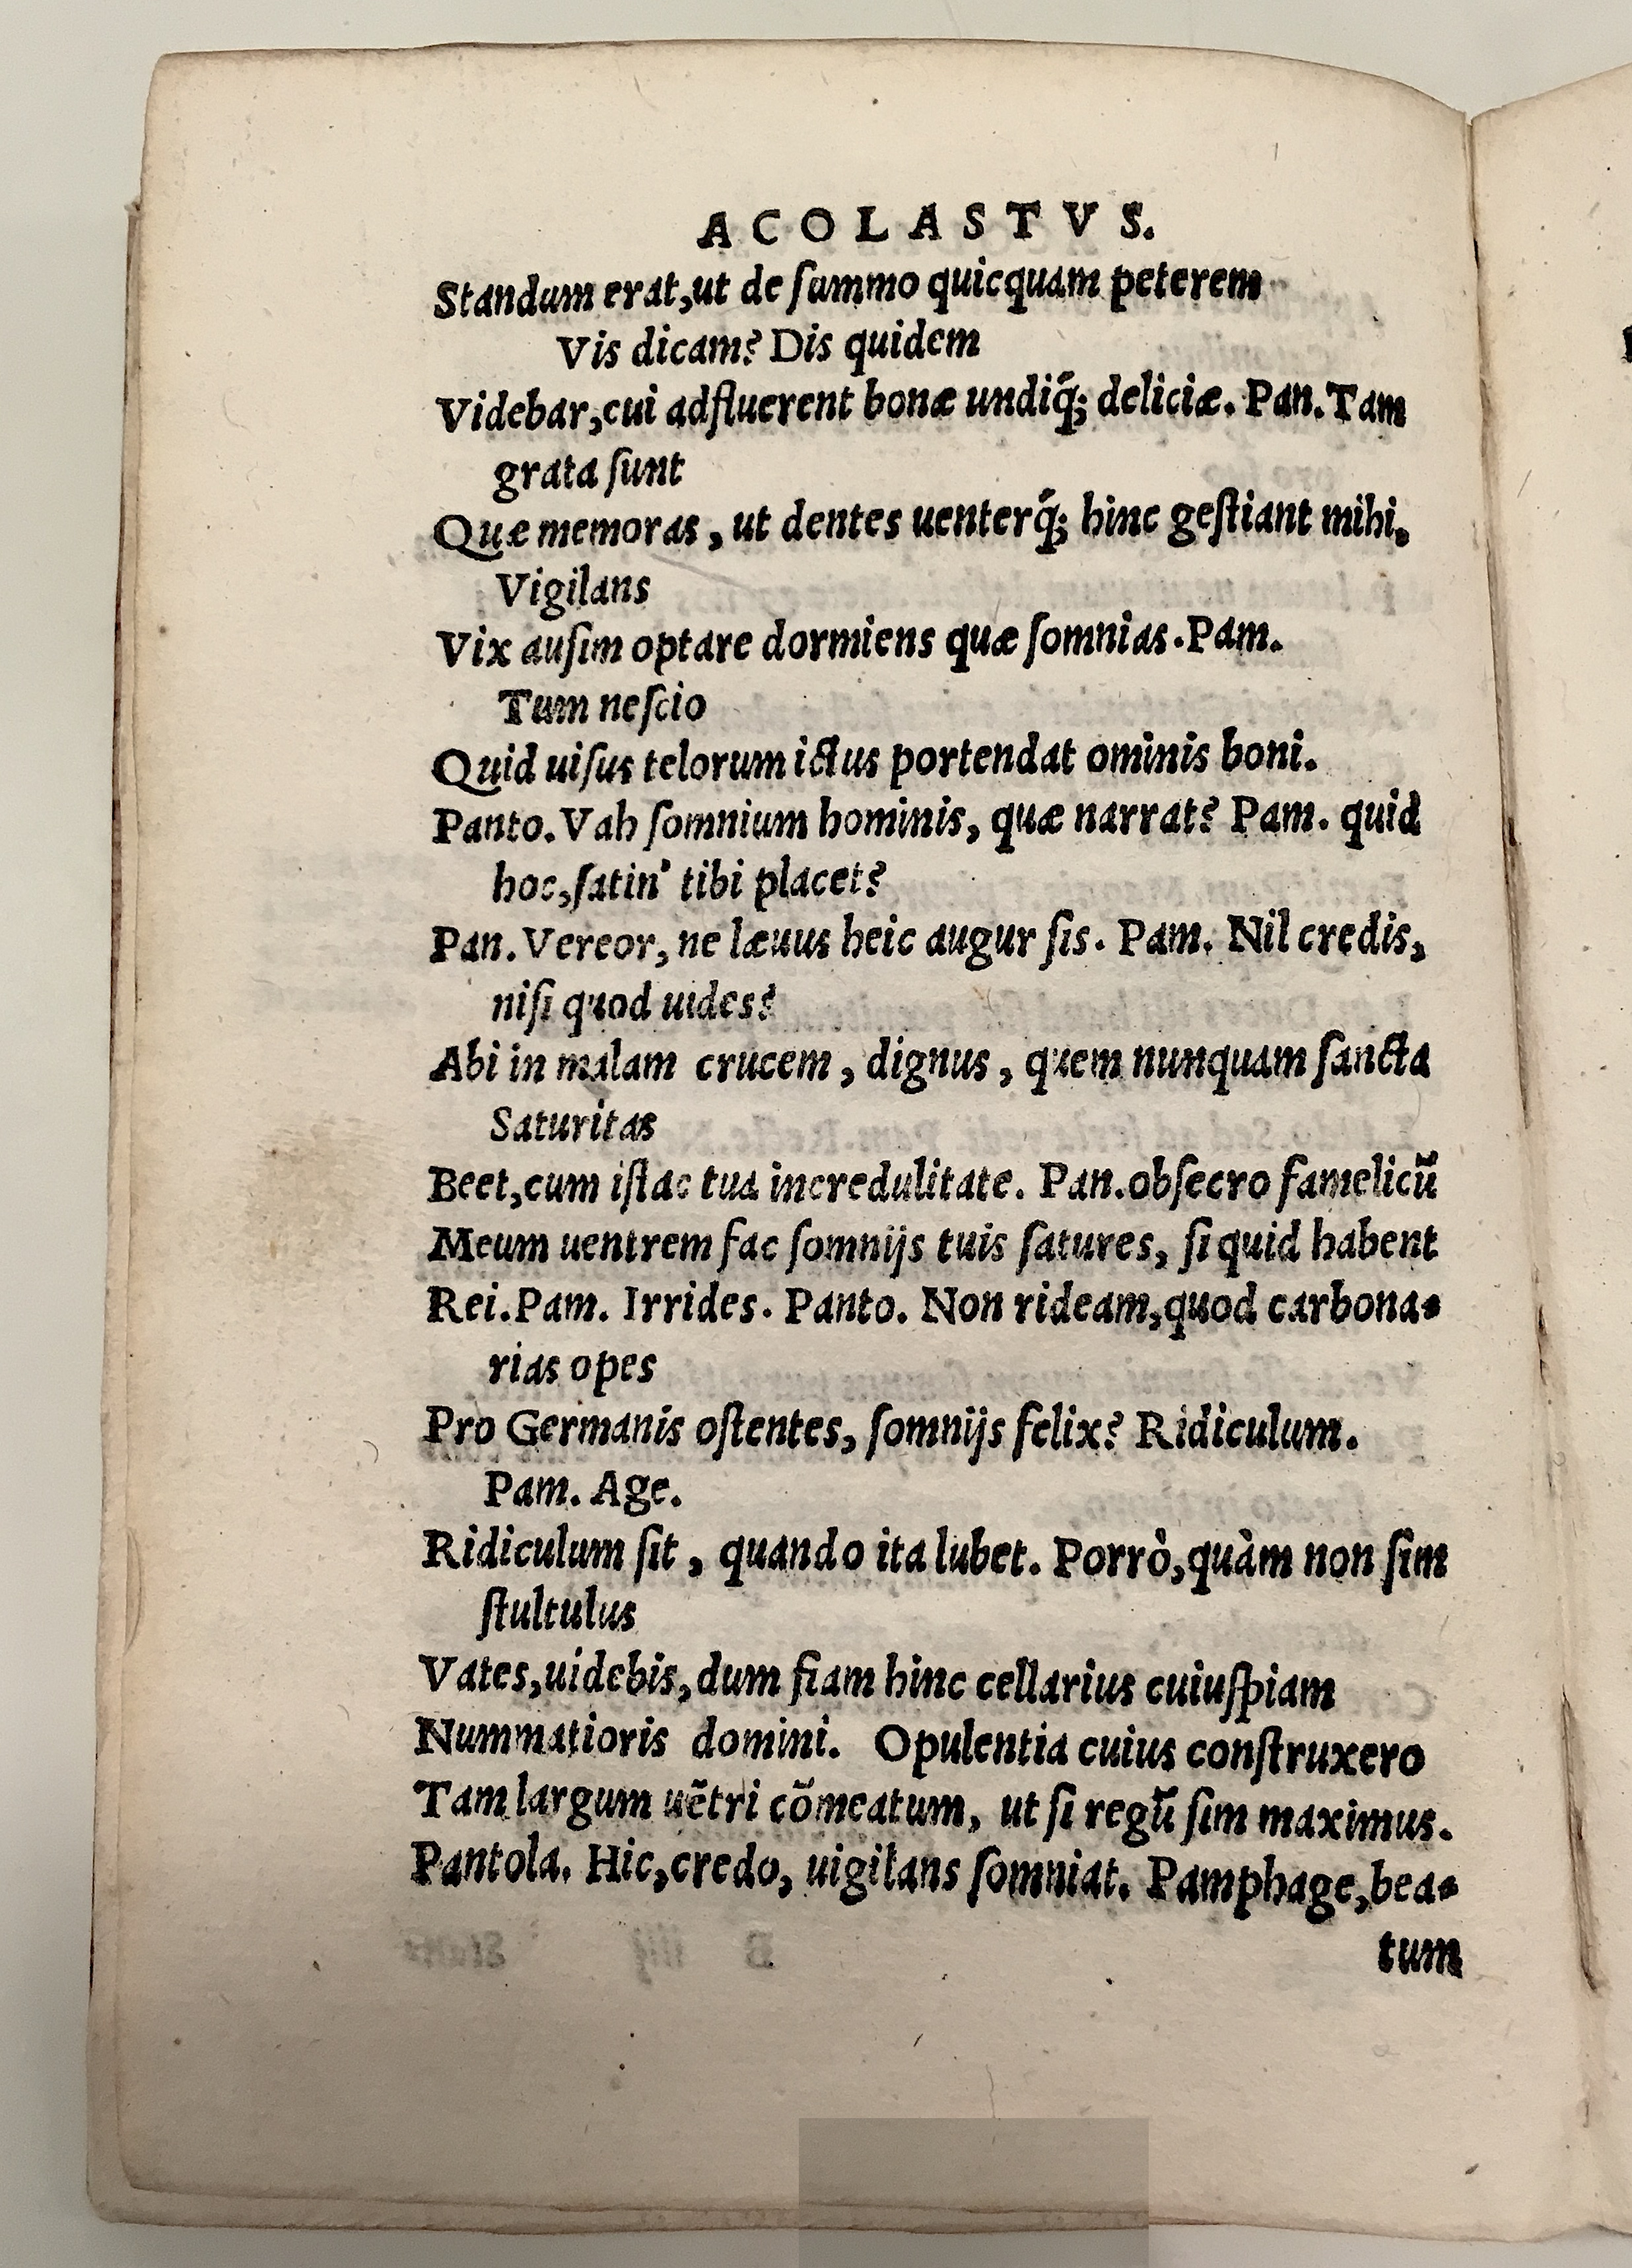 ACOLASTVS.
Standum erat,ut de ſummo quicquam peterem
Vis dicam? Dis quidem
Videbar,cui adfluerent bonæ undiq́; deliciæ. Pan.Tam
grata ſunt
Quæ memoras, ut dentes uenterq́; hinc geſtiant mihi.
Vigilans
Vix auſim optare dormiens quæ ſomnias.Pam.
Tum neſcio
Quid uiſus telorum ictus portendat ominis boni.
Panto. Vah ſomnium hominis, quæ narrat? Pam. quid
hoc,ſatin' tibi placet?
Pan. Vereor, ne læuus heic augur ſis. Pam. Nil credis,
niſi quod uides?
Abi in malam crucem, dignus, quem nunquam ſancta
Saturitas
Beet,cum iſtac tua incredulitate. Pan.obſecro famelicũ
Meum uentrem fac ſomnijs tuis ſatures, ſi quid habent
Rei.Pam. Irrides. Panto. Non rideam,quod carbona-
rias opes
Pro Germanis oſtentes, ſomnijs felix? Ridiculum.
Pam. Age.
Ridiculum ſit, quando ita lubet. Porrò,quàm non ſim
ſtultulus
Vates,uidebis,dum fiam hinc cellarius cuiuſpiam
Nummatioris domini. Opulentia cuius conſtruxero
Tam largum uẽtri cõmeatum, ut ſi regũ ſim maximus.
Pantola. Hic,credo, uigilans ſomniat. Pamphage,bea-
tum